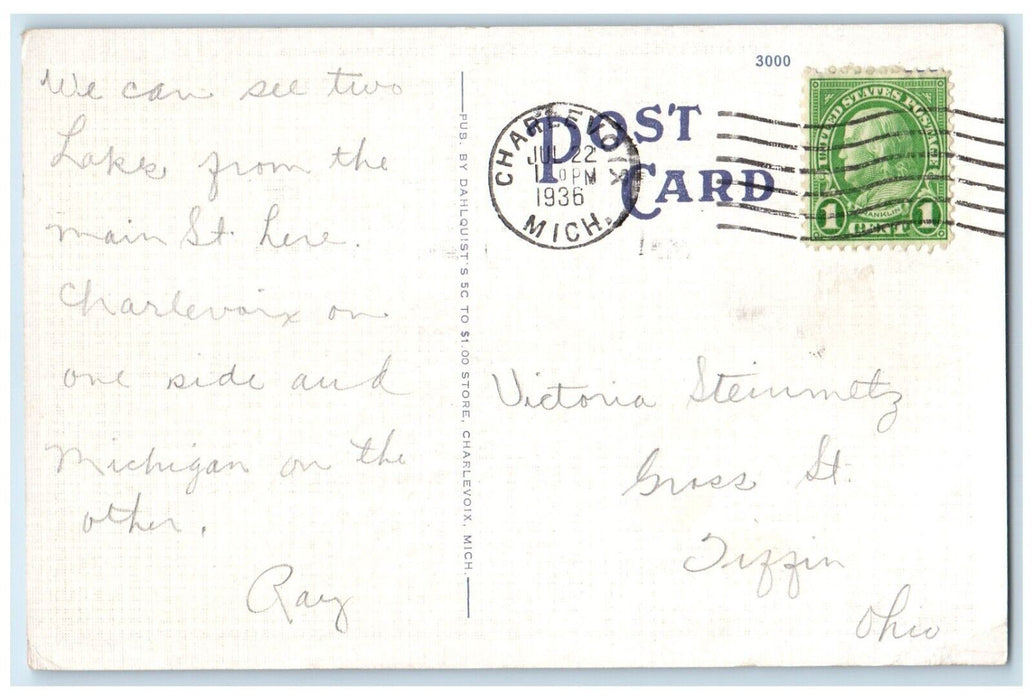 We can see two
Lakes from the
main St. here.
Charlevoix on
one side and
Michigan on the
other.
Ray
PUB. BY DAHLQUIST'S 5C TO $1.00 STORE, CHARLEVOIX, MICH.
3000
POST
CARD
CHARLEVOIX
JUL 22
PM
1936
MICH.
UNITED STATES POSTAGE
FRANKLIN
1 1
Victoria Steinmetz
Gross St.
Tiffin
Ohio